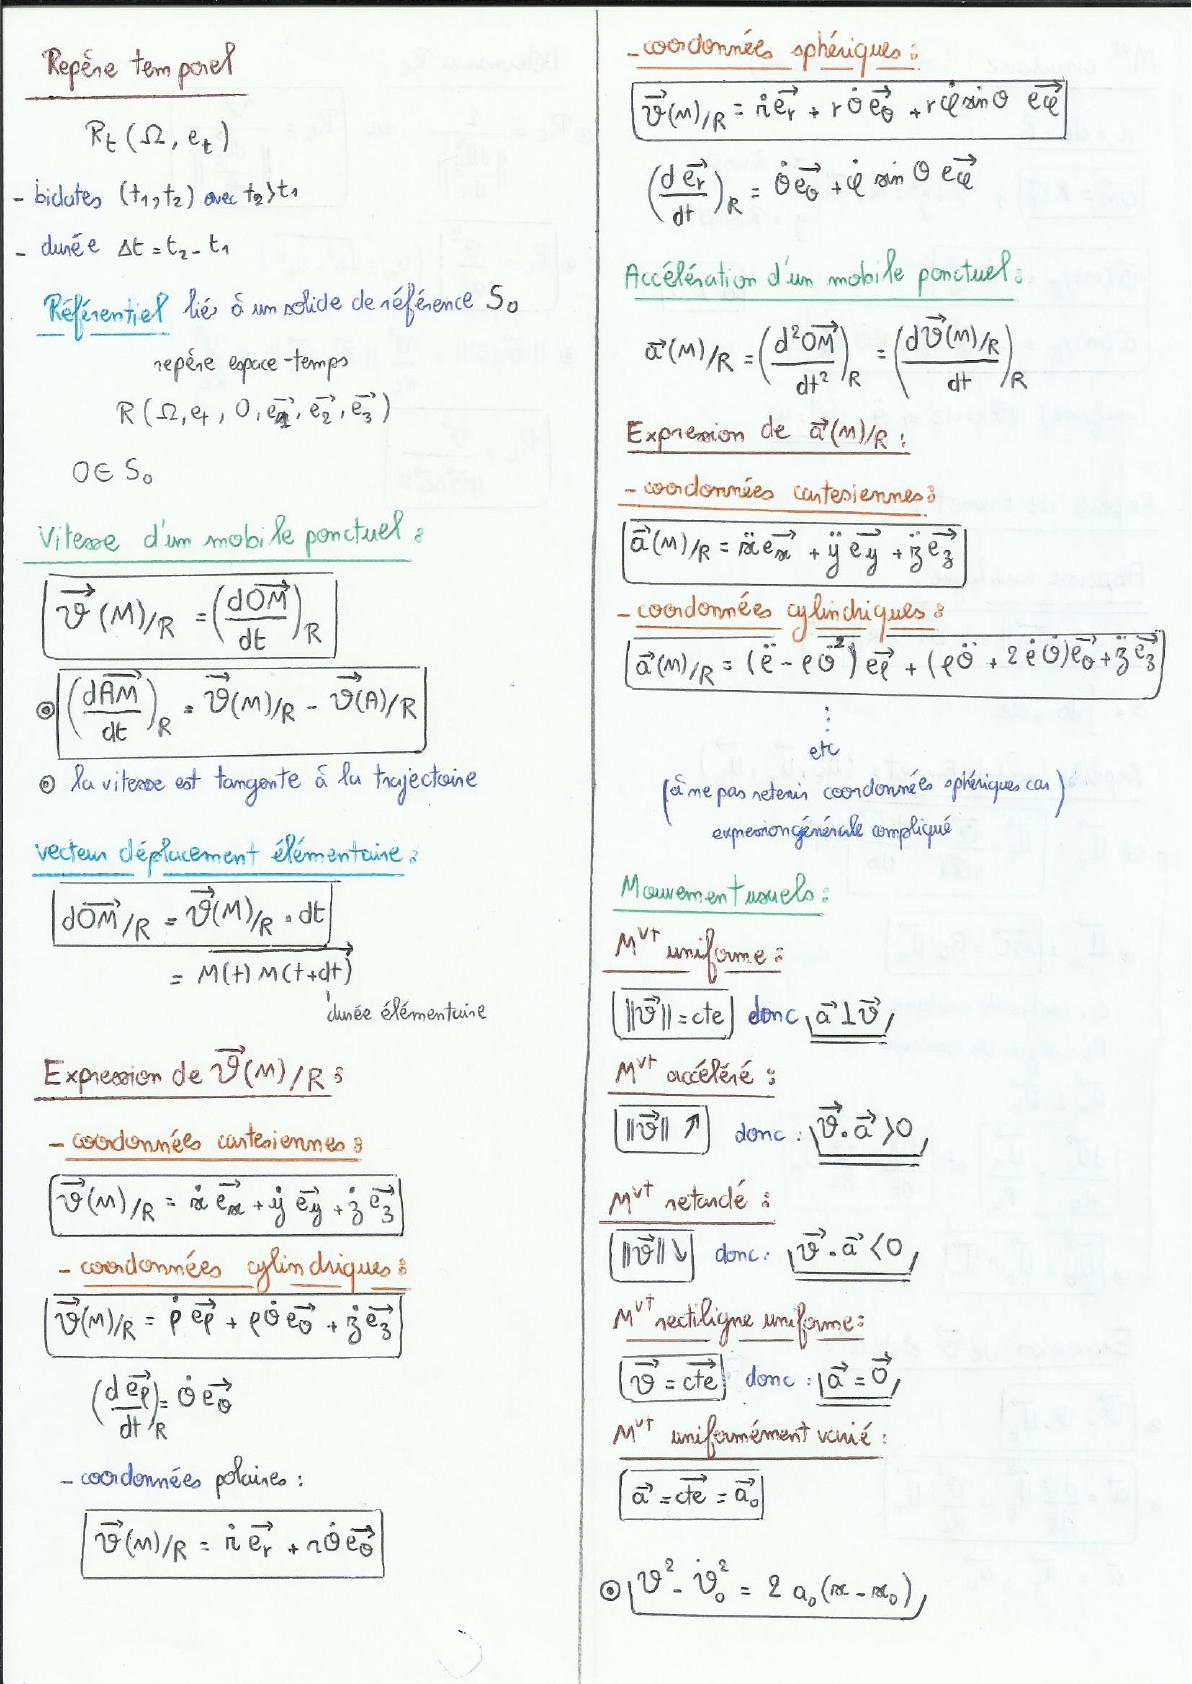 Repère temporel
Rt (Ω, et)
- bidates (t1, t2) avec t2 > t1
- durée Δt = t2 - t1
Référentiel liés à un solide de référence S0
repère espace-temps
R (Ω, et, O, e1→, e2→, e3→)
O ∈ S0
Vitesse d'un mobile ponctuel :
v→(M)/R = (dOM→/dt)R
⊙ (dAM→/dt)R = v→(M)/R - v→(A)/R
⊙ la vitesse est tangente à la trajectoire
vecteur déplacement élémentaire :
dOM→/R = v→(M)/R . dt
= M(t) M(t+dt)→
durée élémentaire
Expression de v→(M)/R :
- coordonnées cartesiennes :
v→(M)/R = ẋ ex→ + ẏ ey→ + ż ez→
- coordonnées cylindriques :
v→(M)/R = ρ̇ eρ→ + ρθ̇ eθ→ + ż ez→
(d eρ→/dt)R = θ̇ eθ→
- coordonnées polaires :
v→(M)/R = ṙ er→ + rθ̇ eθ→
- coordonnées sphériques :
v→(M)/R = ṙ er→ + r θ̇ eθ→ + r φ̇ sin θ eφ→
(d er→/dt)R = θ̇ eθ→ + φ̇ sin θ eφ→
Accélération d'un mobile ponctuel :
a→(M)/R = (d²OM→/dt²)R = (dv→(M)/R/dt)R
Expression de a→(M)/R :
- coordonnées cartesiennes :
a→(M)/R = ẍ ex→ + ÿ ey→ + z̈ ez→
- coordonnées cylindriques :
a→(M)/R = (ρ̈ - ρθ̇²) eρ→ + (ρθ̈ + 2 ρ̇ θ̇) eθ→ + z̈ ez→
⋮
etc
(à ne pas retenir coordonnées sphériques car
expression générale compliqué)
Mouvement usuels :
Mvt uniforme :
||v→|| = cte donc a→ ⊥ v→
Mvt accéléré :
||v→|| ↗ donc : v→ . a→ > 0
Mvt retardé :
||v→|| ↘ donc : v→ . a→ < 0
Mvt rectiligne uniforme :
v→ = cte→ donc : a→ = 0→
Mvt uniformément varié :
a→ = cte→ = a0→
⊙ v² - v0² = 2 a0 (x - x0)